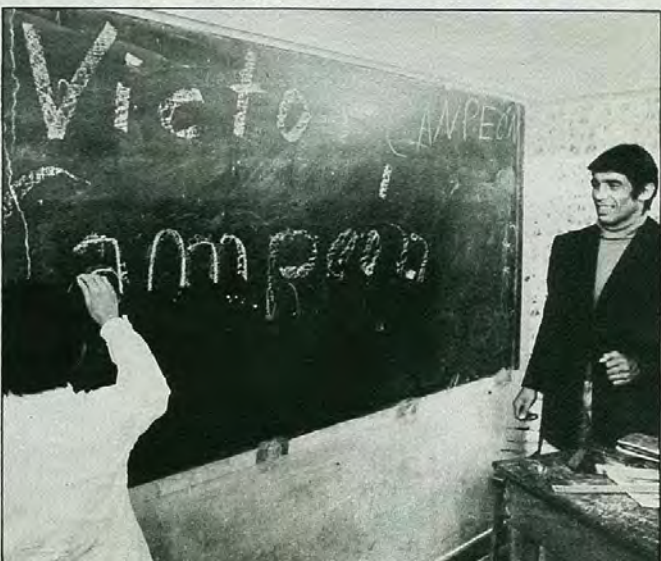 Victo
CANPEON
Campeon